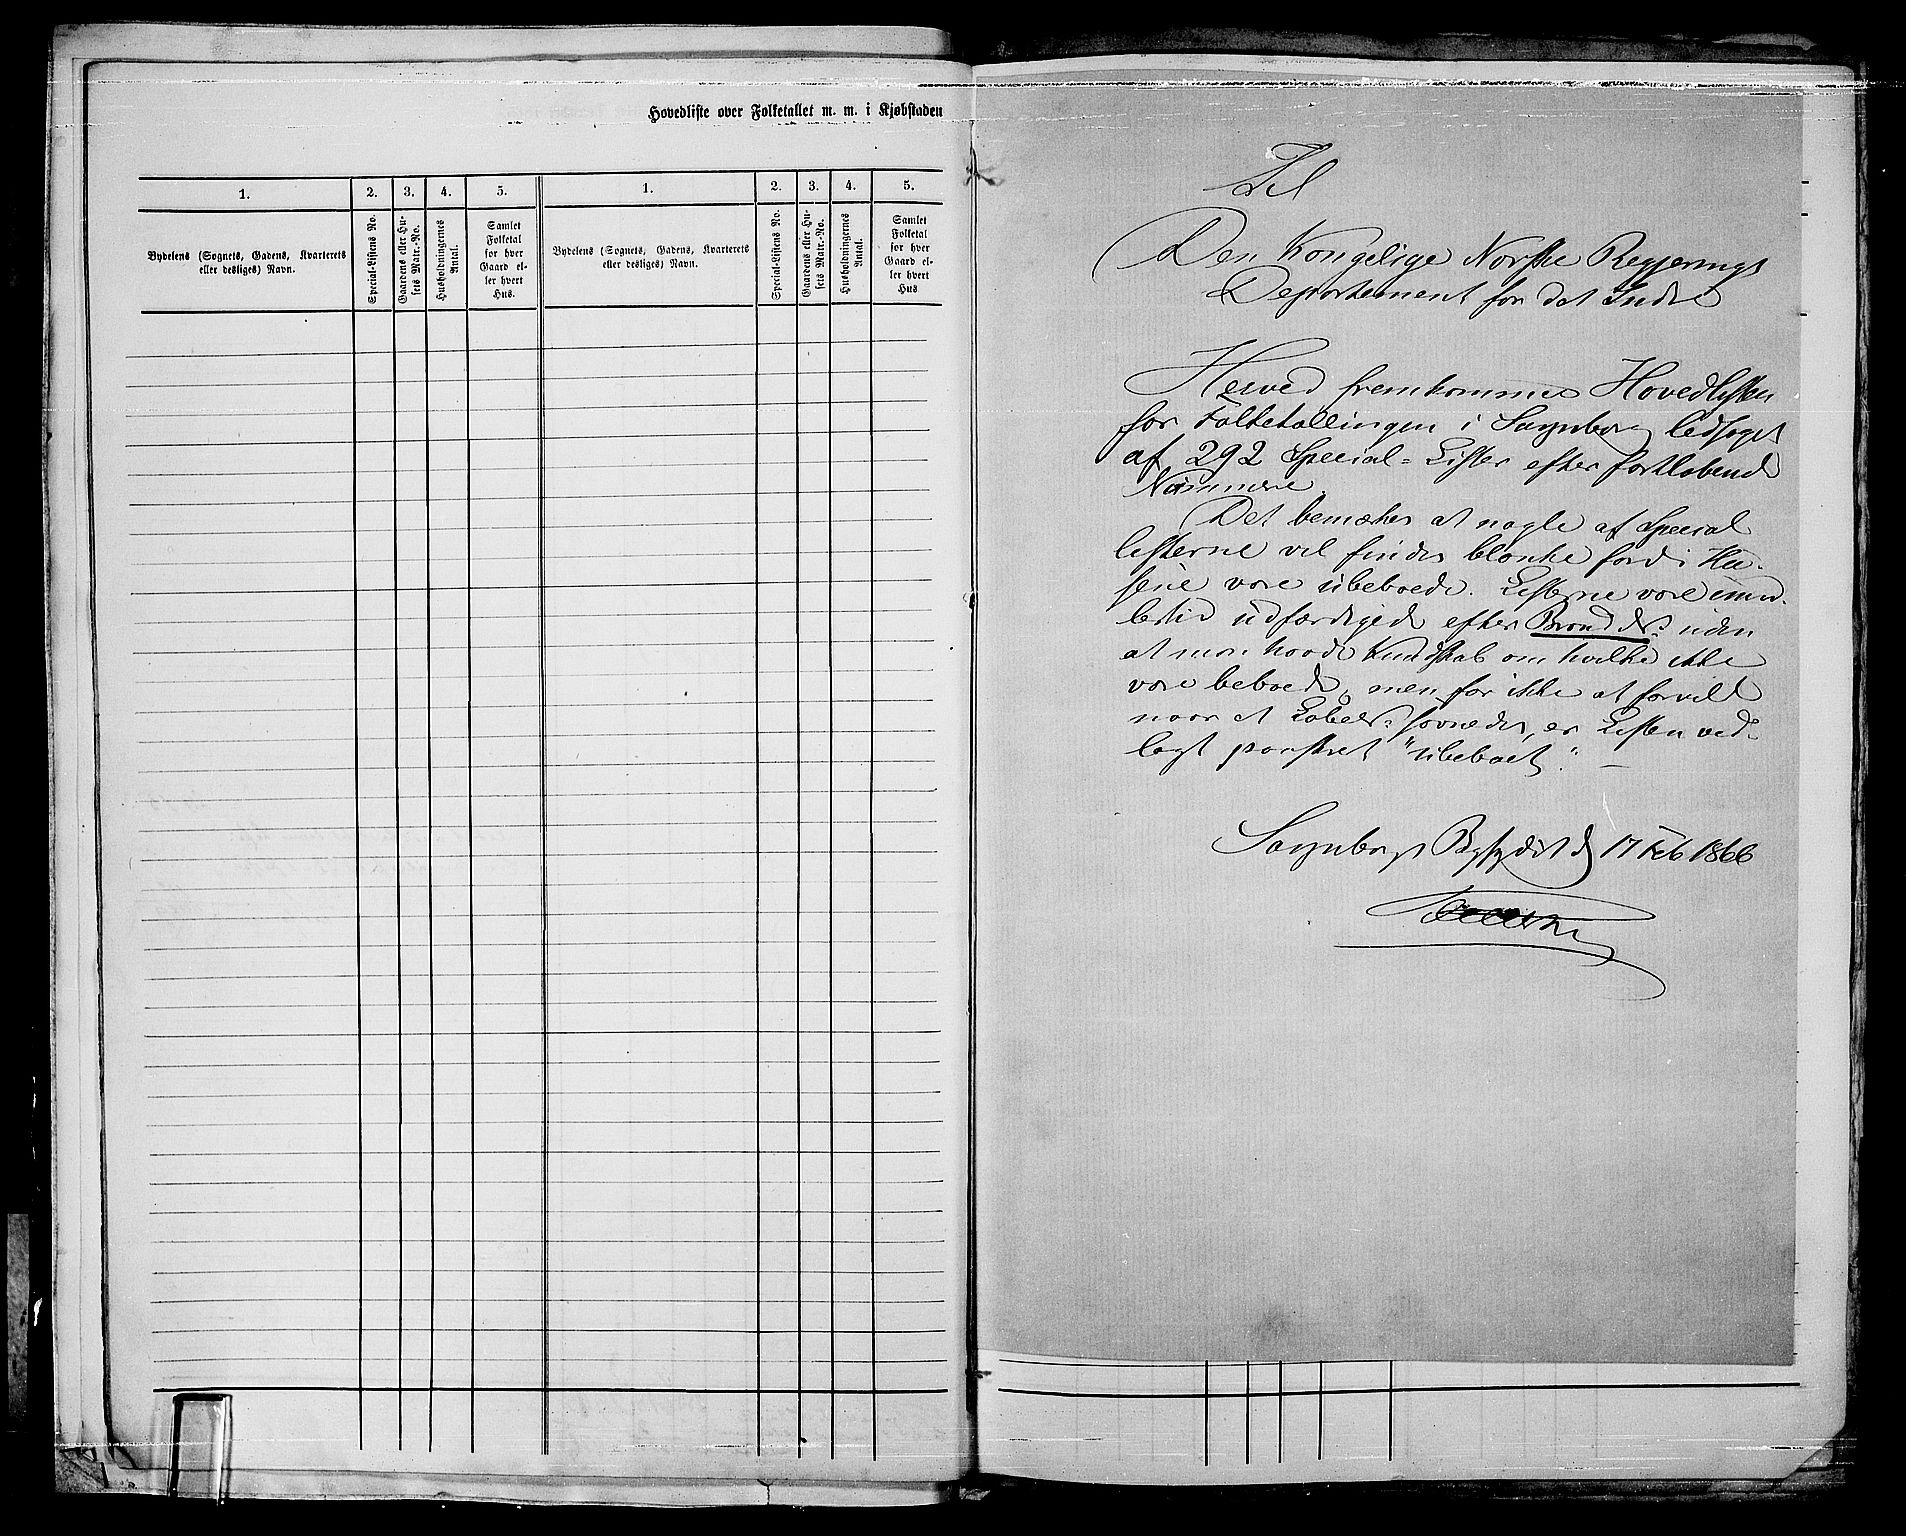 Hovedliste over Folketallet m. m. i Kjøbstaden
1. 2. 3. 4. 5. 1. 2. 3. 4. 5.
Bydelens (Sognets, Gadens, Kvarterets
eller desliges) Navn.
Special-Listens No.
Gaardens eller Hu-
sets Matr.-No.
Husholdningernes
Antal.
Samlet
Folketal
for hver
Gaard el-
ler hvert
Hus.
Bydelens (Sognets, Gadens, Kvarterets
eller desliges) Navn.
Special-Listens No.
Gaardens eller Hu-
sets Matr.-No.
Husholdningernes
Antal.
Samlet
Folketal
for hver
Gaard el-
ler hvert
Hus.
Til
Den Kongelige Norske Regjerings
Departement for det Indre
Herved fremkommer Hovedlisten
for Folketællingen i Sarpsborg ledsaget
af 292 Special-Lister efter fortløbende
Nummere.
Det bemærkes at nogle af Special
listerne vil findes blanke fordi Hu-
sene vare ubeboede. Listerne vare imid-
lertid udfærdigede efter uden
at man havde Kundskab om hvilke ikke
vare beboede, men for ikke at forvilde
naar at savnedes, er Listen ved-
lagt paaskrevet "ubeboet".
Sarpsborgs Byfogdembede d 17 Feb 1866